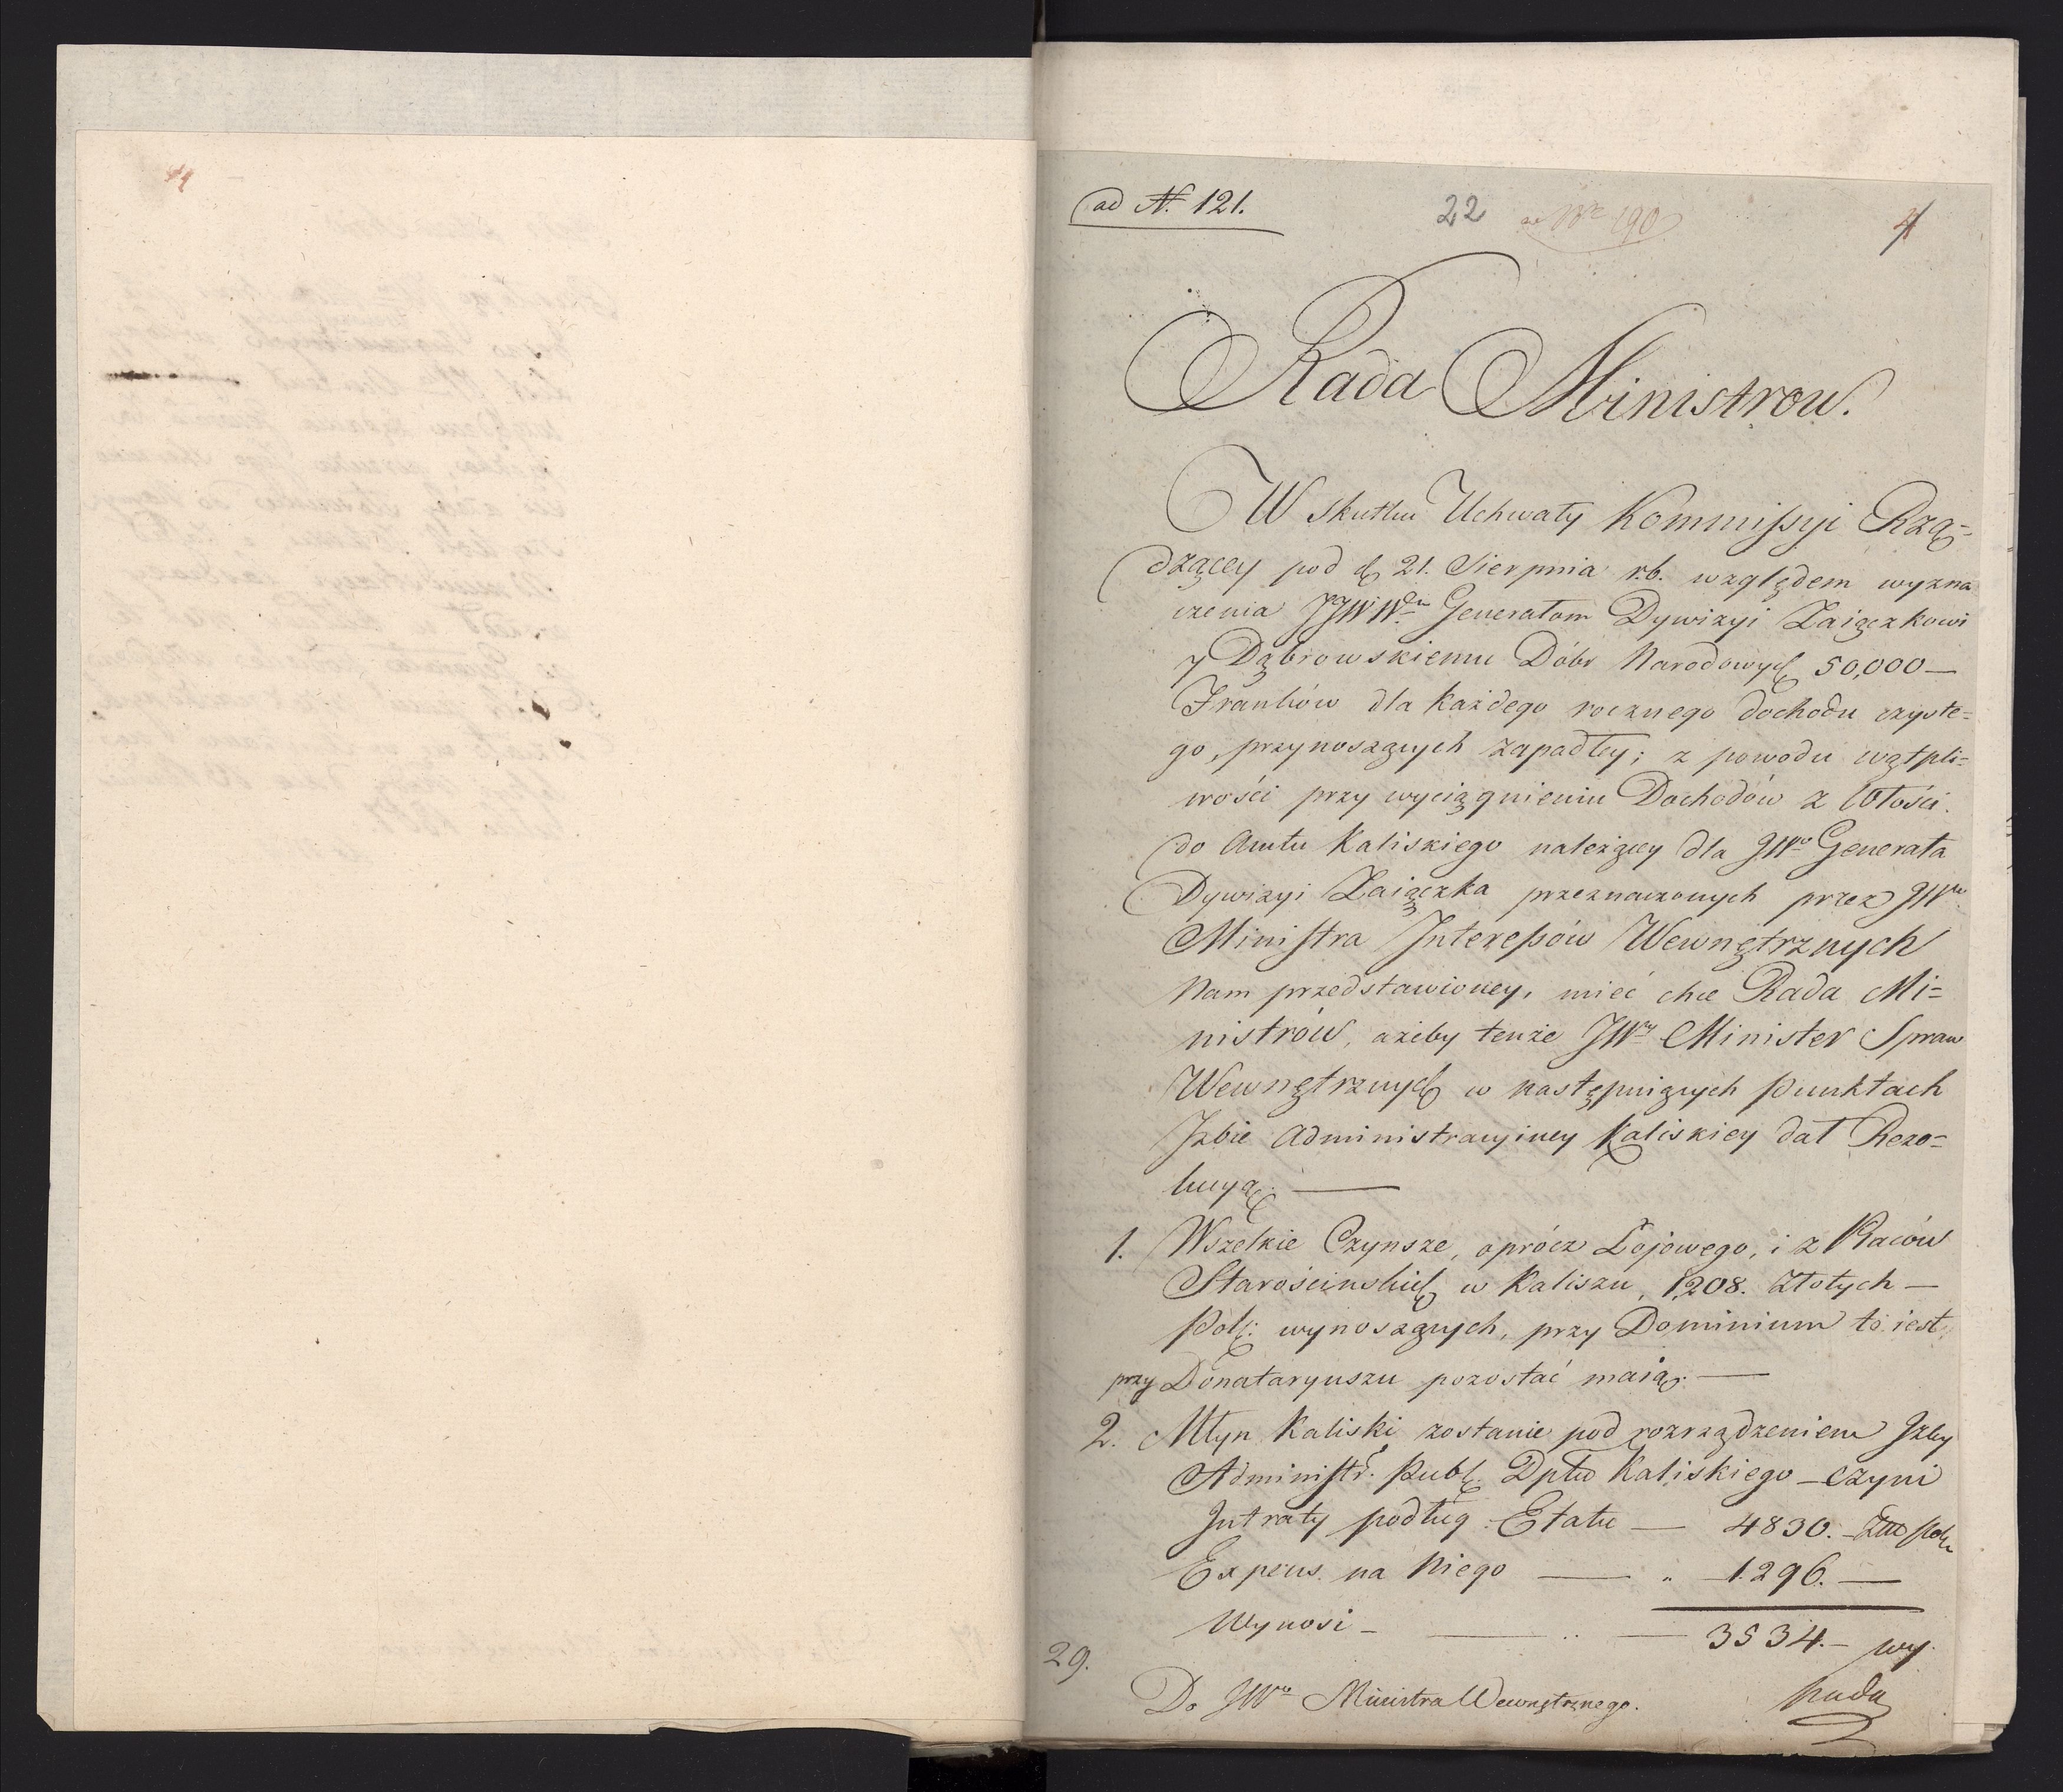 ad N. 121.
22
4
Rada Ministrow.
W skutku Uchwały Kommissyi Rzą-
dzącey pod d 21. Sierpnia r.b. względem wyzna
czenia JJWW. Generałom Dywizyi Zaiączkowi
y Dąbrowskiemu Dóbr Narodowych 50,000—
Franków dla każdego rocznego dochodu czyste-
go, przynoszących zapadłey; z powodu wątpli-
wości przy wyciągnieniu Dochodów z Włości
do Amtu Kaliskiego należącey dla JWo Generała
Dywizyi Zaiączka przeznaczonych przez JWo
Ministra Interessów Wewnętrznych
Nam przedstawioney, mieć chce Rada Mi-
nistrów, ażeby tenże JWy Minister Spraw
Wewnętrznych w następuiących punktach
Izbie Administracyiney Kaliskiey dał Rezo-
lucyą. —
1. Wszelkie Czynsze, oprócz Łojowego, i z Placów
Starościnskich w Kaliszu, 1,208. Złotych —
Pols: wynoszących, przy Dominium to iest,
przy Donataryuszu pozostać maią. —
2. Młyn Kaliski zostanie pod rozrządzeniem Izby
Administr. Publ. Dptu Kaliskiego — czyni
Intraty podług Etatu — 4830. —
Expens. na Niego — „ — 1.296. —
Wynosi — — 3534. — wy.
29.
Do JWo Ministra Wewnętrznego.
pada